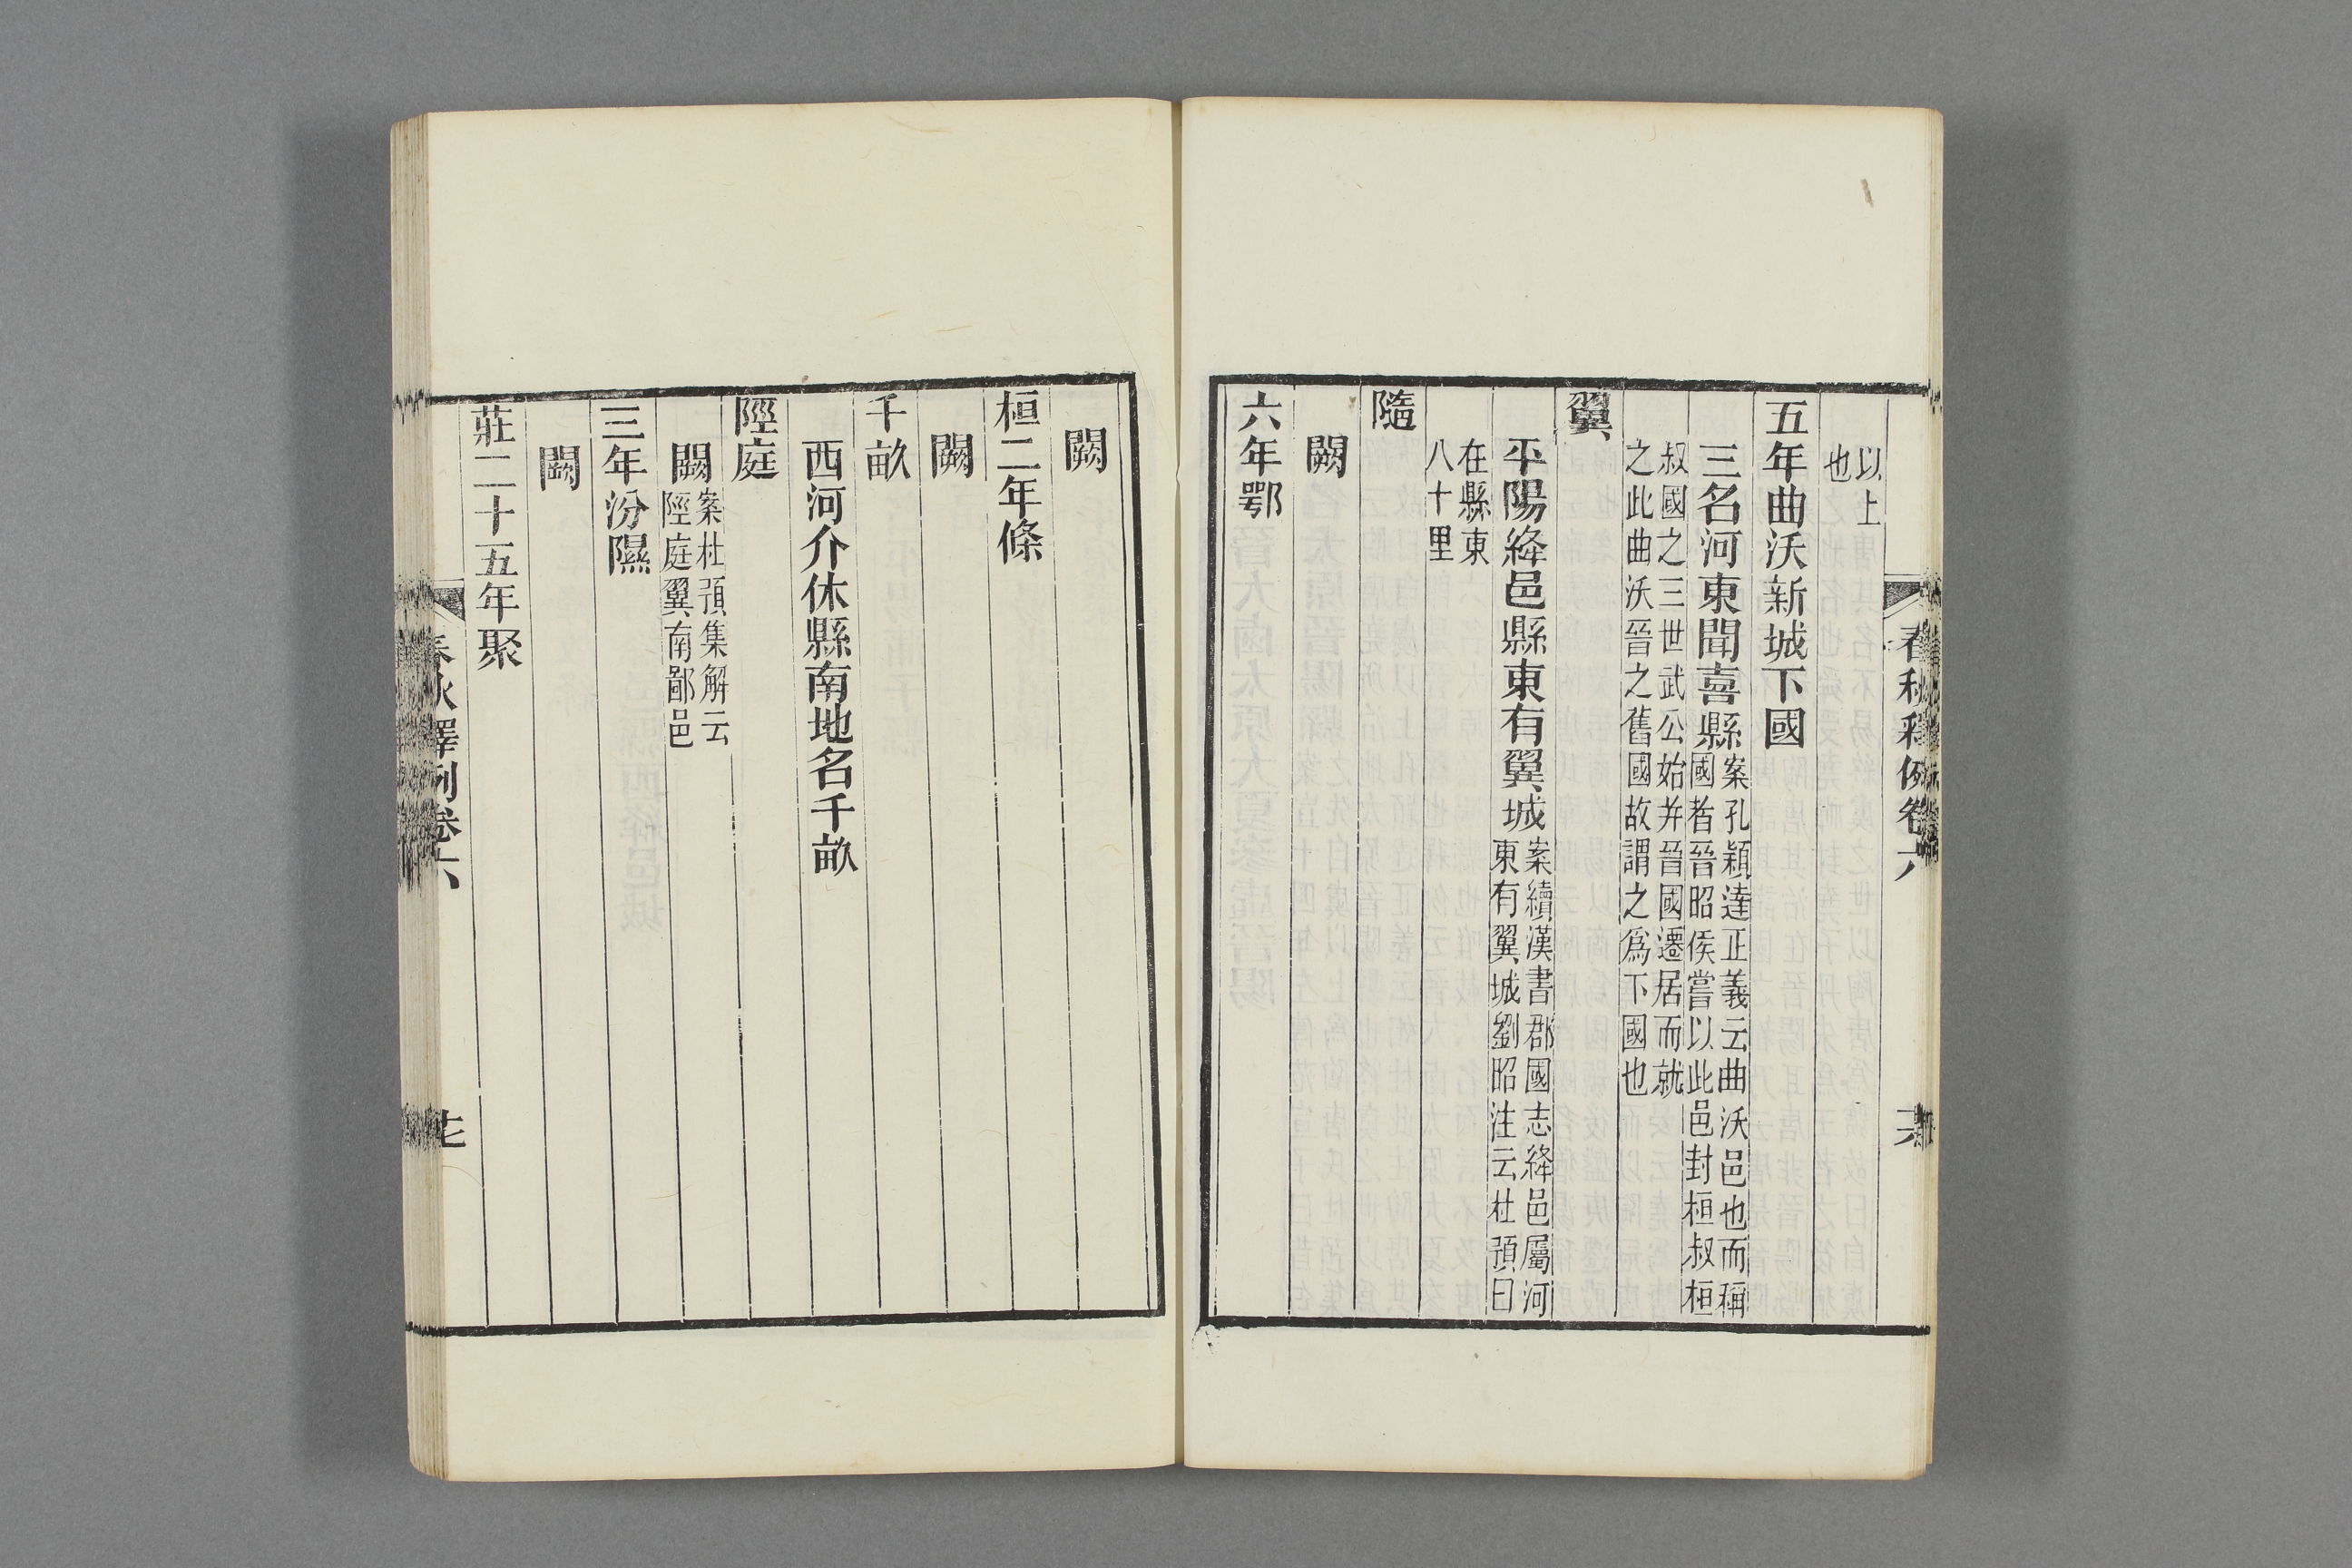 以上
也
五年曲沃新城下國
三名河東聞喜縣案孔穎達正義云曲沃邑也而稱
國者晉昭侯嘗以此邑封桓叔桓
叔國之三世武公始并晉國遷居而就
之此曲沃晉之舊國故謂之爲下國也
翼
平陽絳邑縣東有翼城案續漢書郡國志絳邑屬河
東有翼城劉昭注云杜預曰
在縣東
八十里
隨
闕
六年鄂
闕
桓二年條
闕
千畝
西河介休縣南地名千畝
陘庭
闕案杜預集解云
陘庭翼南鄙邑
三年汾隰
闕
莊二十五年聚
春秋釋例卷六